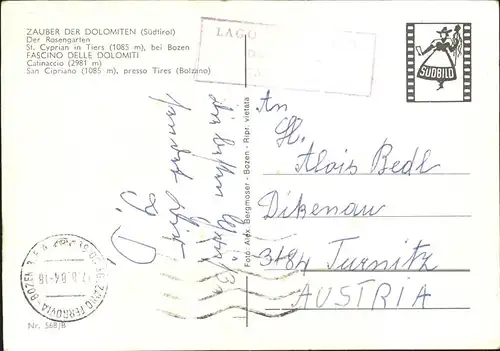 ZAUBER DER DOLOMITEN (Südtirol)
Der Rosengarten
St. Cyprian in Tiers (1085 m), bei Bozen
FASCINO DELLE DOLOMITI
Catinaccio (2981 m)
San Cipriano (1085 m), presso Tires (Bolzano)
LAGO
SÜDBILD
Foto Alex. Bergmoser - Bozen - Ripr. vietata
An
H.
Alois Bedl
Dikenau
3184 Turnitz
AUSTRIA
die besten Grüße
sendet
J. D
FERROVIA - BOZEN
Nr. 568/B